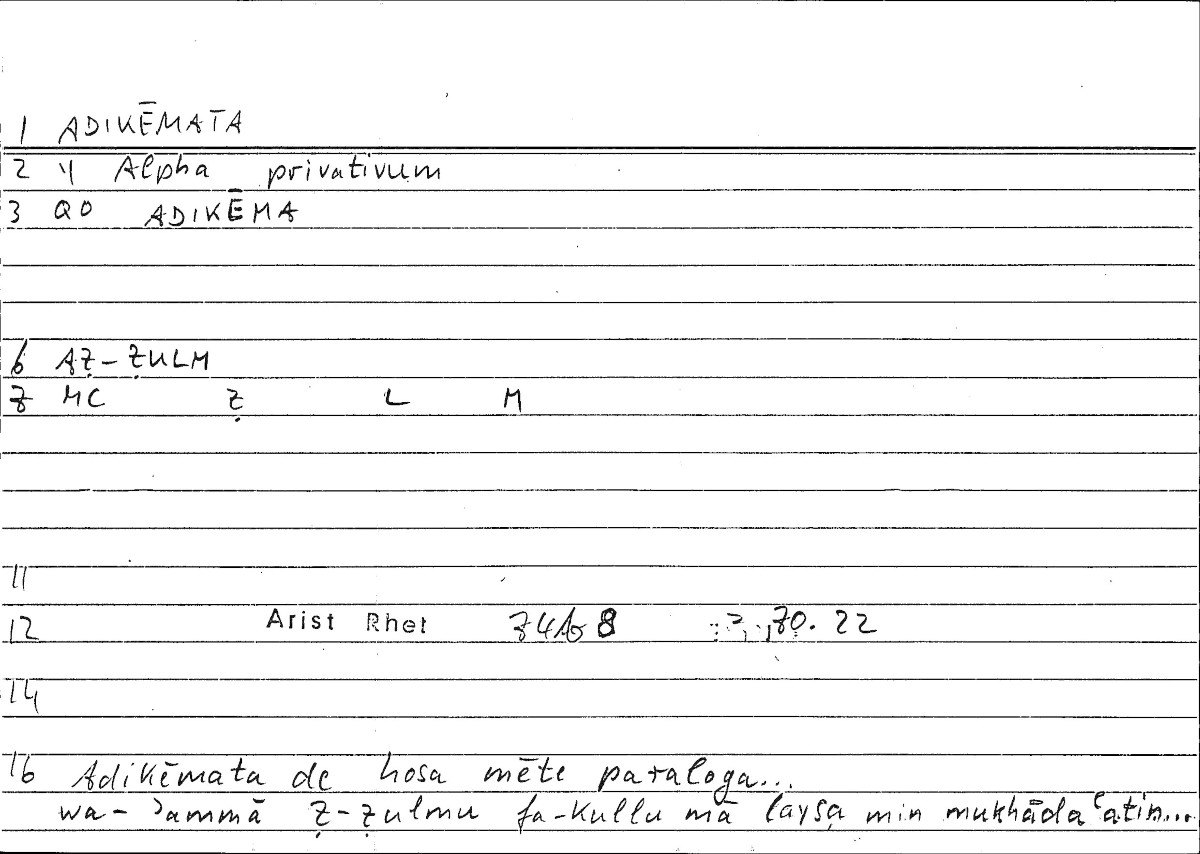 1 ADIKĒMATA
2 4 Alpha privativum
3 QO ADIKĒMA
6 AẒ-ẒULM
7 MC Ẓ L M
11
12 Arist Rhet 74b 8 70.22
14
16 Adikēmata de hosa mēte paraloga...
wa-ʾammā ẓ-ẓulmu fa-kullu mā laysa min mukhādaʿatin...